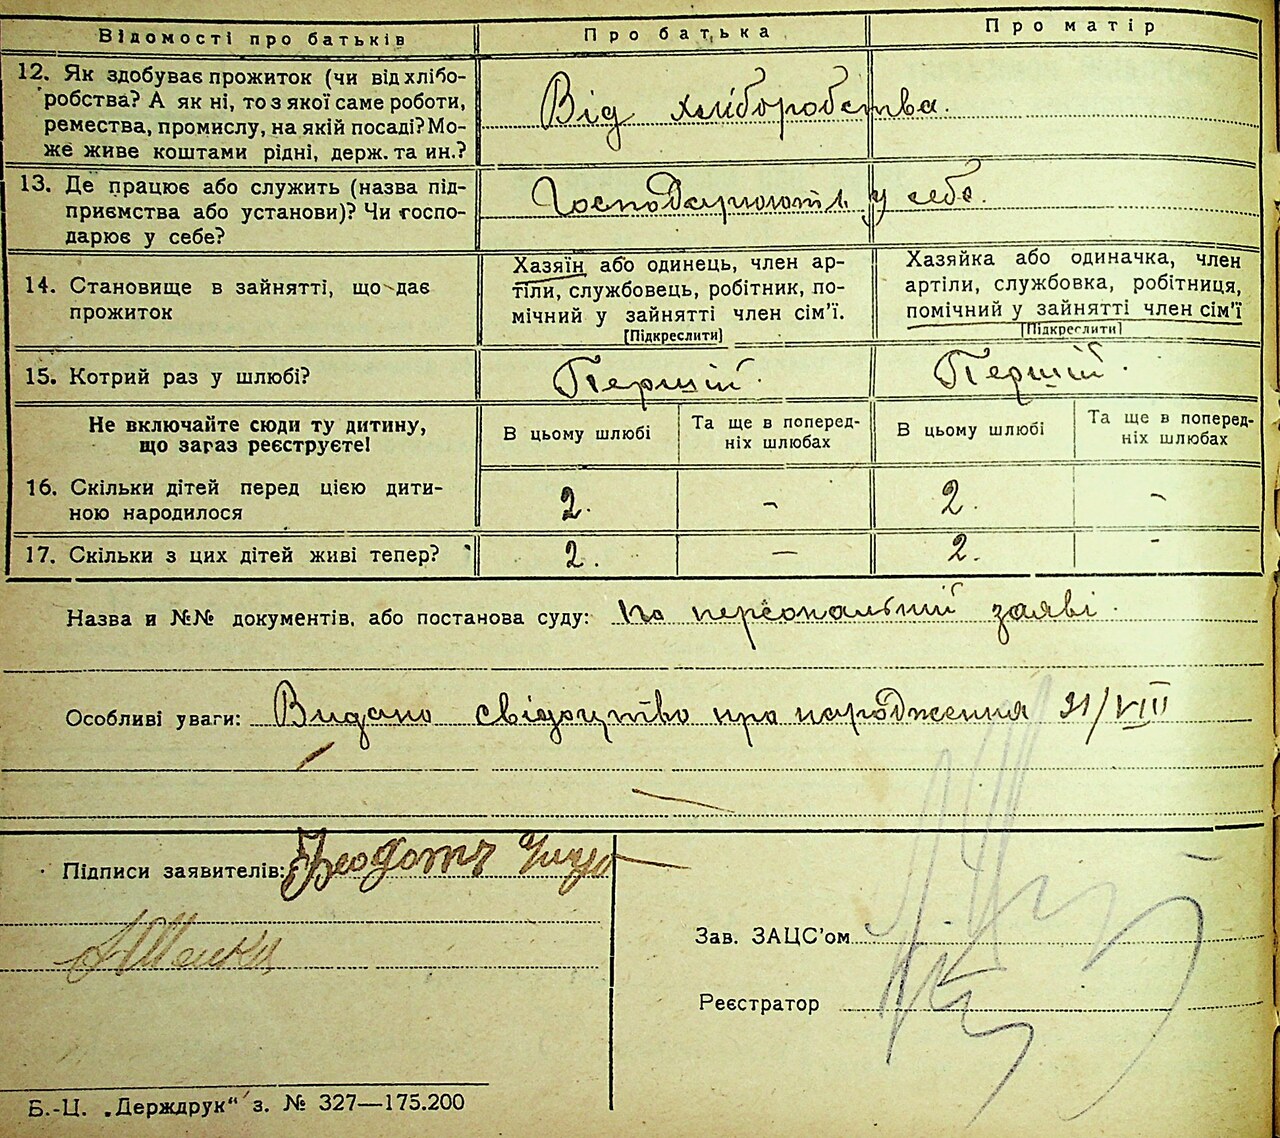 Відомості про батьків
Про батька
Про матір
12. Як здобуває прожиток (чи від хлібо-
робства? А як ні, то з якої саме роботи,
ремества, промислу, на якій посаді? Мо-
же живе коштами рідні, держ. та ин.?
Від хліборобства.
13. Де працює або служить (назва під-
приємства або установи)? Чи госпо-
дарює у себе?
Господарюють у себе.
14. Становище в зайнятті, що дає
прожиток
Хазяїн або одинець, член ар-
тіли, службовець, робітник, по-
мічний у зайнятті член сім'ї.
[Підкреслити]
Хазяйка або одиначка, член
артіли, службовка, робітниця,
помічний у зайнятті член сім'ї
[Підкреслити]
15. Котрий раз у шлюбі?
Перший.
Перший.
Не включайте сюди ту дитину,
що загаз реєструєте!
В цьому шлюбі
Та ще в поперед-
ніх шлюбах
В цьому шлюбі
Та ще в поперед-
ніх шлюбах
16. Скільки дітей перед цією дити-
ною народилося
2.
-
2.
-
17. Скільки з цих дітей живі тепер?
2.
—
2.
-
Назва и №№ документів, або постанова суду: По персональній заяві.
Особливі уваги: Видано свідоцтво про народження 21/VIII
Підписи заявителів: Теодотъ
Зав. ЗАЦС'ом
Реєстратор
Б.-Ц. „Держдрук" з. № 327—175.200